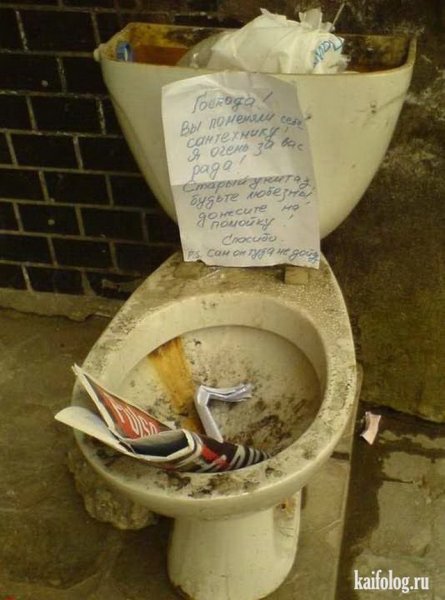 Господа!
Вы поменяли себе
сантехнику!
Я очень за вас
рада!
Старый унитаз,
будьте любезны
донесите на
помойку!
Спасибо.
P.S. Сам он туда не дойд
kaifolog.ru